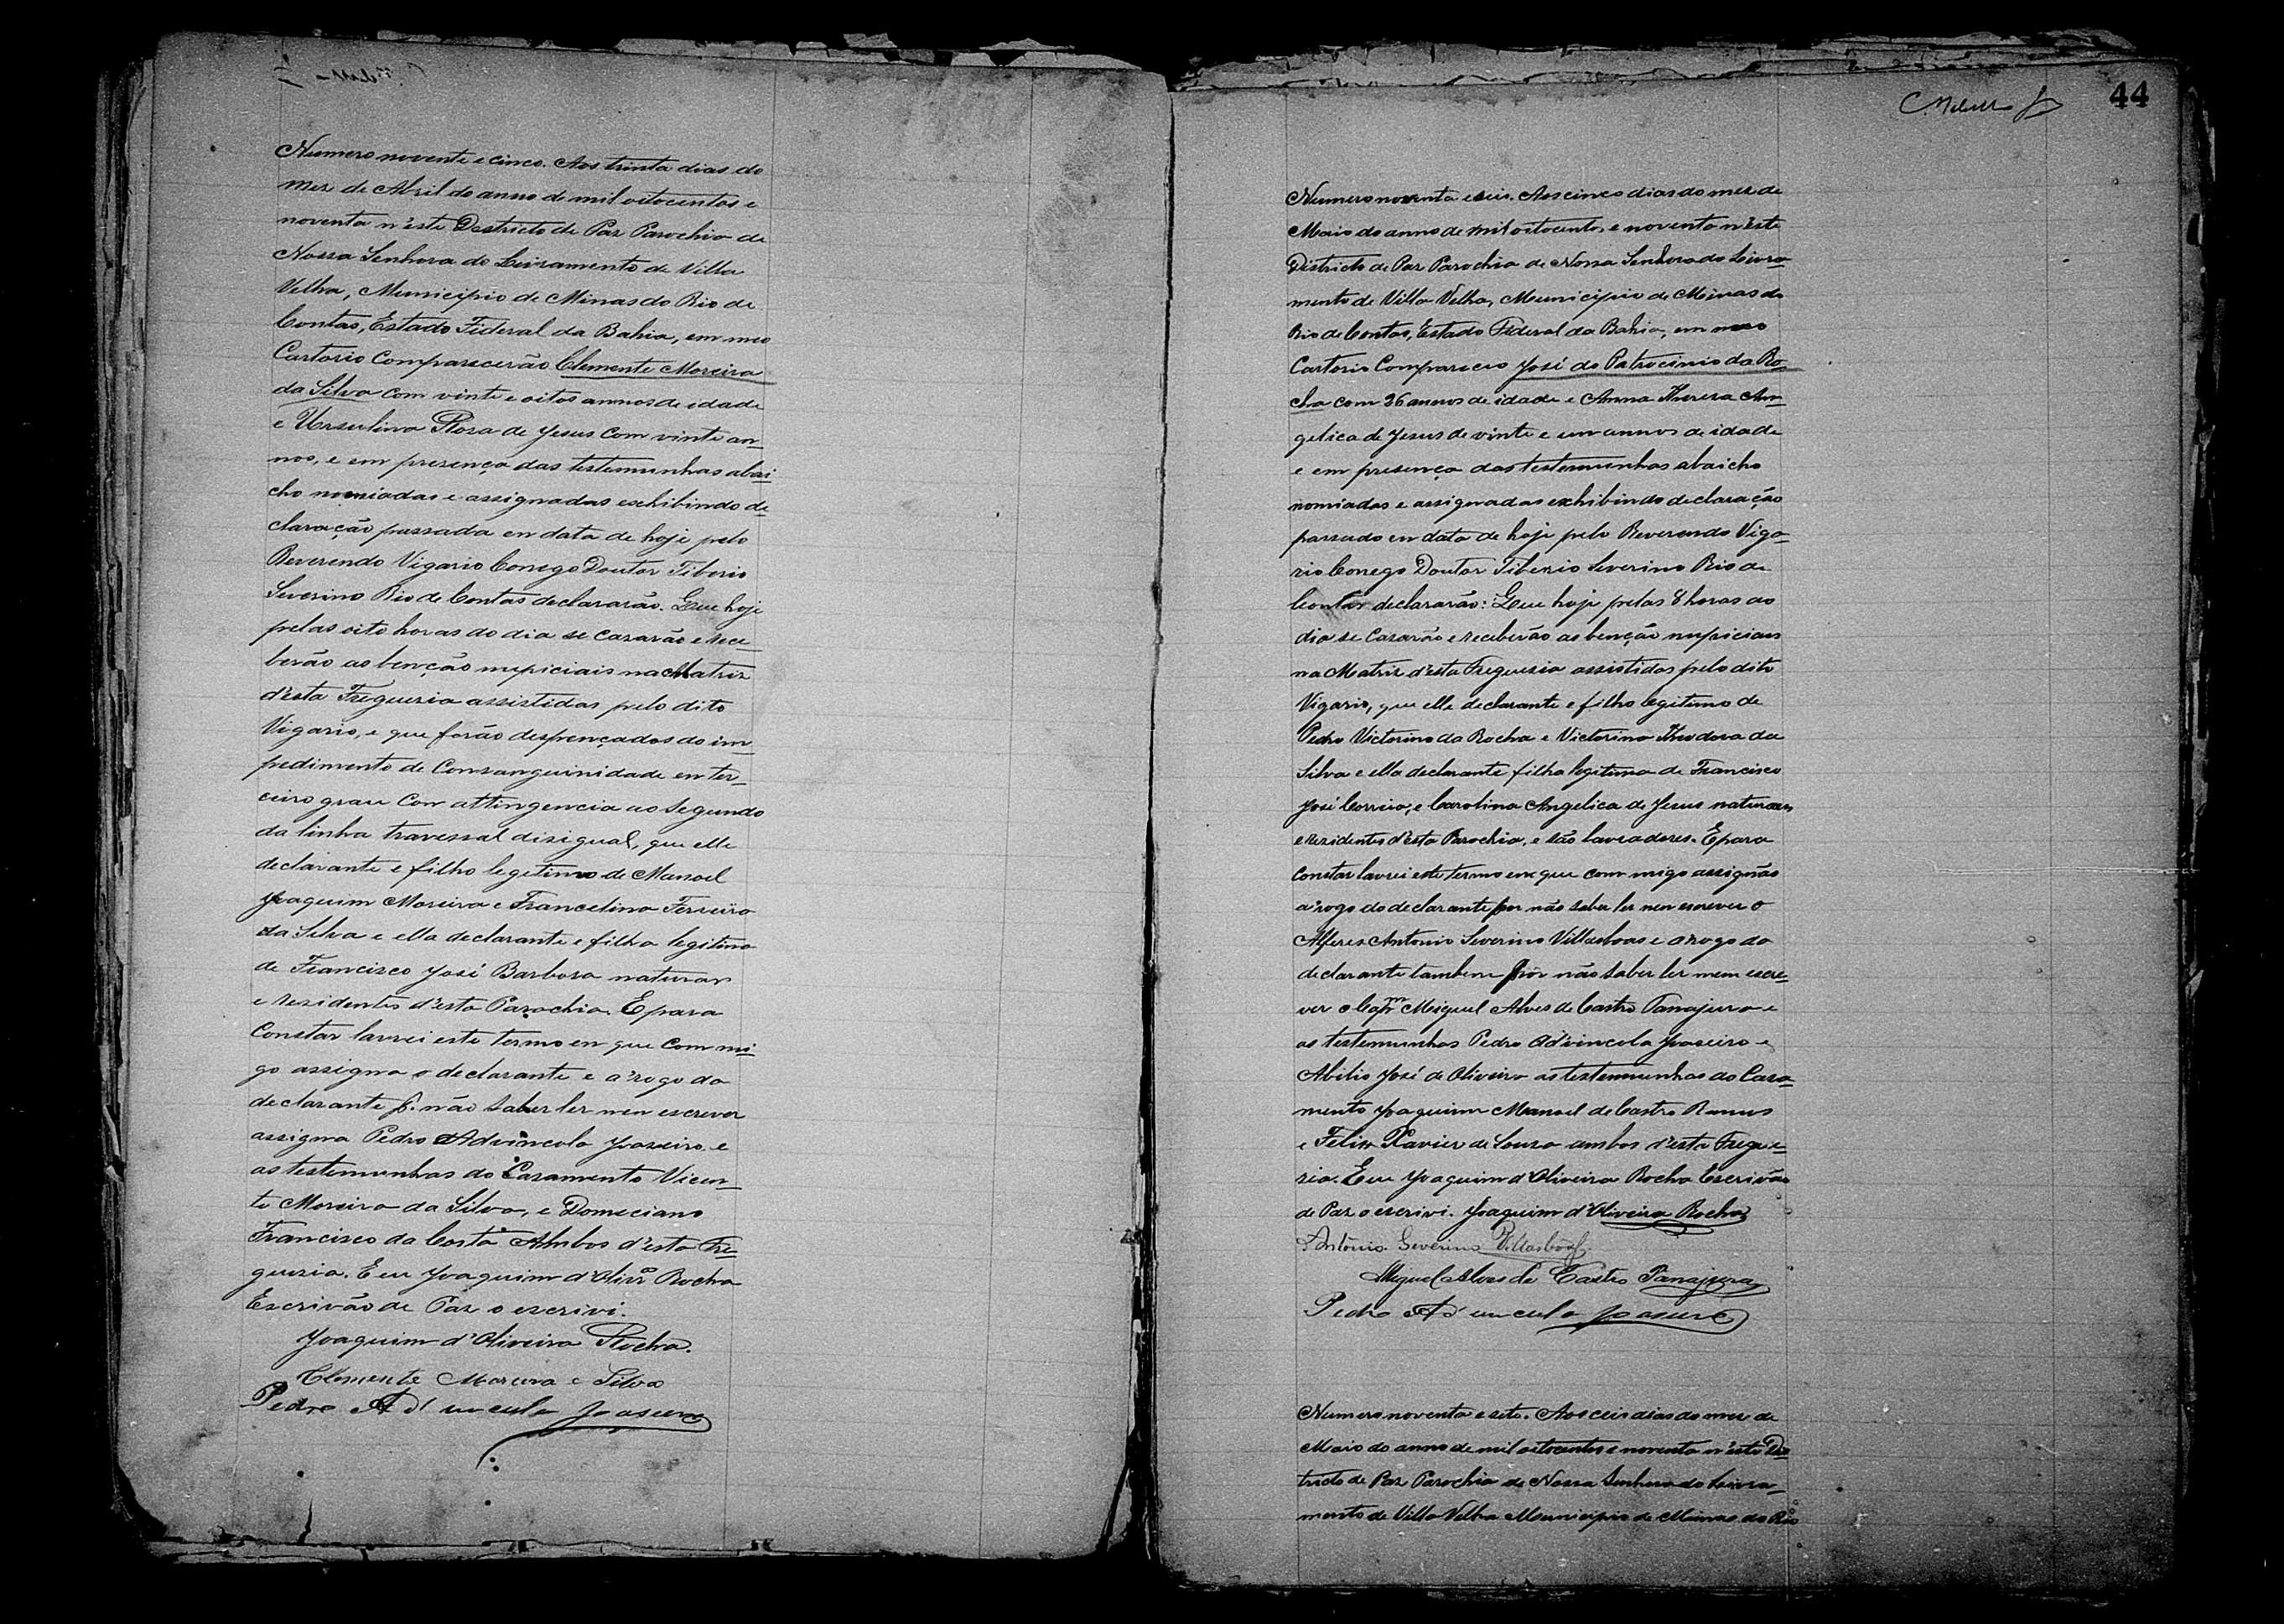 Numero noventa e cinco. Aos trinta dias do
mez de Abril do anno de mil oitocentos e
noventa n'este Destricto de Paz Parochia de
Nossa Senhora do Livramento de Villa
Velha, Municipio de Minas do Rio de
Contas, Estado Federal da Bahia, em meu
Cartorio Comparecerão Clemente Moreira
da Silva com vinte e oitos annos de idade
e Ursulina Roza de Jesus com vinte an-
nos, e em presença das testemunhas abai-
cho nomiadas e assignadas exchibindo de-
claração passada en data de hoje pelo
Reverendo Vigario Conego Doutor Tiberio
Severino Rio de Contas declararão. Que hoje
pelas oito horas do dia se cazarão e rece-
berão as benção nupiciais na Matriz
d'esta Freguezia assistidos pelo dito
Vigario, e que forão despençados do im-
pedimento de Consanguinidade en ter-
ceiro grau Con attingencia ao Segundo
da linha travessal disigual, que elle
declarante e filho legitimo de Manoel
Joaquim Moreira e Francelina Ferreira
da Silva e ella declarante e filha legitima
de Francisco José Barboza naturaes
e rezidentes d'esta Parochia. E para
Constar lavrei este termo en que com mi-
go assigna o declarante e a rogo da
declarante p. não saber ler nem escrever
assigna Pedro Advincola Joazeiro e
as testemunhas do Cazamento Vicen-
te Moreira da Silva, e Domiciano
Francisco da Costa Ambos d'esta Fre-
guezia. Eu Joaquim d'Olivrª Rocha
Escrivão de Paz o escrivi.
Joaquim d'Oliveira Rocha.
Clemente Morera e Silva
Pedro Ad'uncula Joaseiro
44
Numero noventa e seis. Aos cinco dias do mez de
Maio do anno de mil oitocentos e noventa n'este
Districto de Paz Parochia de Nossa Senhora do Livra-
mento de Villa Velha, Municipio de Minas do
Rio de Contas, Estado Federal da Bahia, em meo
Cartorio Compareceo José do Patrocinio da Ro-
cha com 26 annos de idade e Anna Thereza An-
gelica de Jesus de vinte e um annos de idade
e em presença das testemunhas abaicho
nomiadas e assignadas exhibindo declaração
passado en data de hoje pelo Reverendo Viga-
rio Conego Doutor Tiberio Severino Rio de
Contas declararão: Que hoje pelas 8 horas do
dia se Cazarão e receberão as benção nupiciais
na Matriz d'esta Freguezia assistidos pelo dito
Vigario, que elle declarante e filho legitimo de
Pedro Victorino da Rocha e Victorina Theodora da
Silva e ella declarante filha legitima de Francisco
José Correia, e Carolina Angelica de Jesus naturaes
e rezidentes d'esta Parochia, e são lavradores. E para
Constar lavrei este termo em que com migo assignão
a rogo do declarante por não saber ler nem escrever o
Alferes Antonio Severino Villasboas e a rogo da
declarante tambem por não saber ler nem escre-
ver o Capm Miguel Alves de Castro Tanajura e
as testemunhas Pedro Ad'vincola Joaseiro e
Abilio José de Oliveira as testemunhas do Caza-
mento Joaquim Manoel de Castro Ramos
e Felix Xavier de Souza ambos d'esta Fregue-
zia. Eu Joaquim d'Oliveira Rocha Escrivão
de Paz o escrivi. Joaquim d'Oliveira Rocha
Antônio Severino Villasbôas
Miguel Alves de Castro Tanajura
Pedro Ad'uncula Joaseiro
Numero noventa e sete. Aos ceis dias do mez de
Maio do anno de mil oitocentos e noventa n'este Dis-
tricto de Paz Parochia de Nossa Senhora do Livra-
mento de Villa Velha Municipio de Minas do Rio